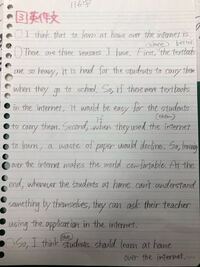 116字
[3]英作文
○ I think that to learn at home over the internet is
better.
○ There are three reasons I have. First, the textbooks
are so heavy, it is hard for the students to carry them
when they go to school. So, if there were textbooks
in the internet, it would be easy for the students
to carry them. Second, when they used the internet
to learn, a waste of paper would decline. So,
over the internet makes the world comfortable. At the
end, whenever the students at home can't understand
something by themselves, they can ask their teacher
using the application in the internet.
So, I think students should learn at home
over the internet.